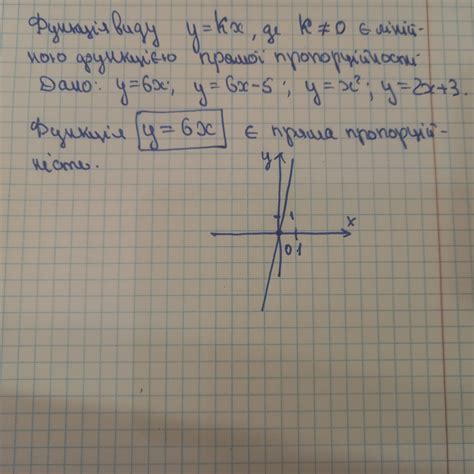 Функція виду y=kx, де k≠0 є ліній-
ною функцією прямої пропорційності.
Дано: y=6x; y=6x-5; y=x²; y=2x+3.
Функція y=6x є пряма пропорцій-
ність.
y
1
x
0 1